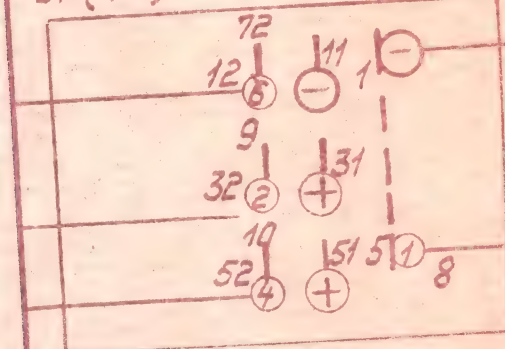 72
12 6 − 11 1 −
9
32 2 + 31
10
52 4 + 51 5 1 8